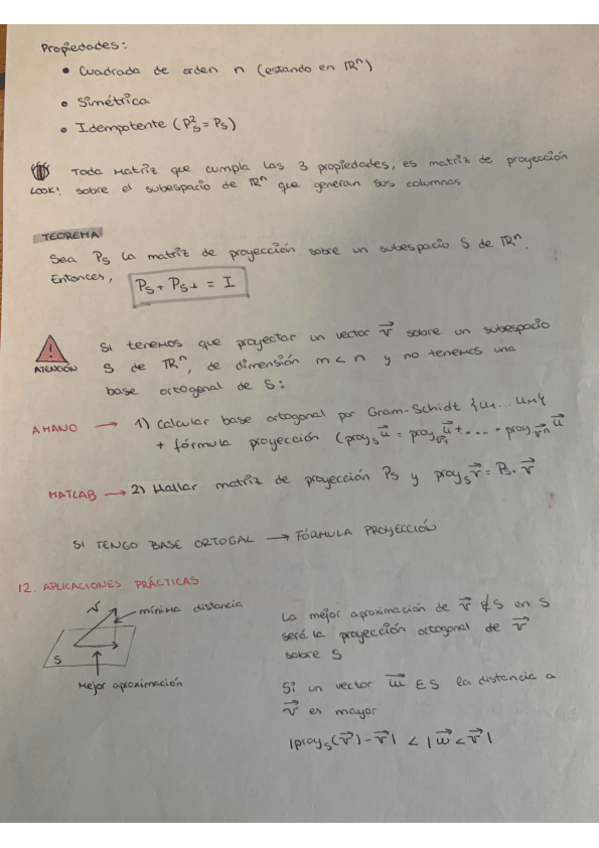 Propiedades:
• Cuadrada de orden n (estando en ℝⁿ)
• Simétrica
• Idempotente (P²ₛ = Pₛ)
Toda matriz que cumpla las 3 propiedades, es matriz de proyección
LOOK! sobre el subespacio de ℝⁿ que generan sus columnas
TEOREMA
Sea Pₛ la matriz de proyección sobre un subespacio S de ℝⁿ.
Entonces, Pₛ + Pₛ⊥ = I
Si tenemos que proyectar un vector v⃗ sobre un subespacio
ATENCIÓN S de ℝⁿ, de dimensión m < n y no tenemos una
base ortogonal de S:
A MANO → 1) Calcular base ortogonal por Gram-Schidt {u₁...uₘ}
+ fórmula proyección (proyₛ u⃗ = proy_v⃗₁ u⃗ + ... + proy_v⃗ⁿ u⃗
MATLAB → 2) Hallar matriz de proyección Pₛ y proyₛ v⃗ = Pₛ · v⃗
SI TENGO BASE ORTOGAL → FÓRMULA PROYECCIÓN
12. APLICACIONES PRÁCTICAS
v mínima distancia
S
Mejor aproximación
La mejor aproximación de v⃗ ∉ S en S
será la proyección ortogonal de v⃗
sobre S
Si un vector w⃗ ∈ S la distancia a
v⃗ es mayor
|proyₛ(v⃗) - v⃗| < |w⃗ < v⃗|